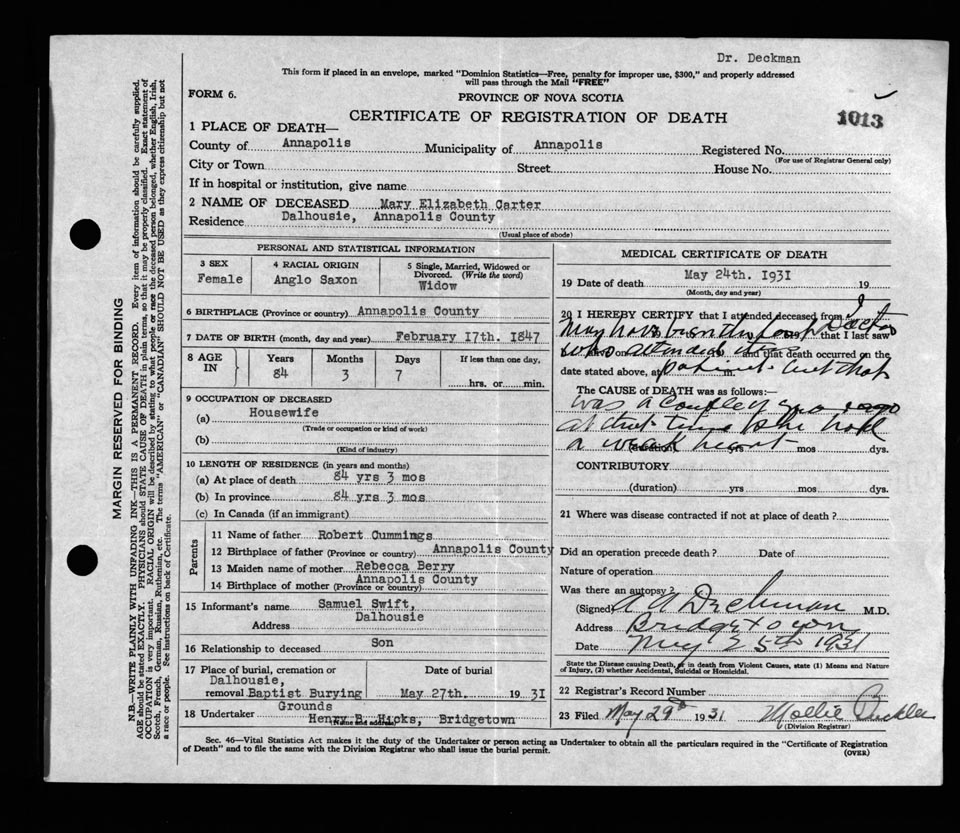 Dr. Deckman
This form if placed in an envelope, marked "Dominion Statistics—Free, penalty for improper use, $300," and properly addressed
will pass through the Mail "FREE"
FORM 6.
PROVINCE OF NOVA SCOTIA
CERTIFICATE OF REGISTRATION OF DEATH
1013
1 PLACE OF DEATH—
County of Annapolis Municipality of Annapolis Registered No.
(For use of Registrar General only)
City or Town Street House No.
If in hospital or institution, give name
2 NAME OF DECEASED Mary Elizabeth Carter
Residence Dalhousie, Annapolis County
(Usual place of abode)
PERSONAL AND STATISTICAL INFORMATION
3 SEX
Female
4 RACIAL ORIGIN
Anglo Saxon
5 Single, Married, Widowed or
Divorced. (Write the word)
Widow
6 BIRTHPLACE (Province or country) Annapolis County
7 DATE OF BIRTH (month, day and year) February 17th. 1847
8 AGE
IN
Years
84
Months
3
Days
7
If less than one day,
hrs. or min.
9 OCCUPATION OF DECEASED
(a) Housewife
(Trade or occupation or kind of work)
(b)
(Kind of industry)
10 LENGTH OF RESIDENCE (in years and months)
(a) At place of death 84 yrs 3 mos
(b) In province 84 yrs 3 mos
(c) In Canada (if an immigrant)
Parents
11 Name of father Robert Cummings
12 Birthplace of father (Province or country) Annapolis County
13 Maiden name of mother Rebecca Berry
14 Birthplace of mother (Province or country) Annapolis County
15 Informant's name Samuel Swift,
Address Dalhousie
16 Relationship to deceased Son
17 Place of burial, cremation or Date of burial
Dalhousie,
removal Baptist Burying May 27th. 1931
Grounds
18 Undertaker Henry B. Hicks, Bridgetown
(Name and address)
MEDICAL CERTIFICATE OF DEATH
19 Date of death May 24th. 1931 19
(Month, day and year)
20 I HEREBY CERTIFY that I attended deceased from
May have been the Doctor that I last saw
who on attended and that death occurred on the
date stated above, at patient but that m.
The CAUSE of DEATH was as follows:—
was a couple of
at that time she had
a weak heart
(duration) yrs mos dys.
CONTRIBUTORY
(duration) yrs mos dys.
21 Where was disease contracted if not at place of death?
Did an operation precede death? Date of
Nature of operation
Was there an autopsy?
(Signed) A A Deckman M.D.
Address Bridgetown
Date May 25th 1931
State the Disease causing Death, or in death from Violent Causes, state (1) Means and Nature
of Injury, (2) whether Accidental, Suicidal or Homicidal.
22 Registrar's Record Number
23 Filed May 29th 1931 Mollie
(Division Registrar)
Sec. 46—Vital Statistics Act makes it the duty of the Undertaker or person acting as Undertaker to obtain all the particulars required in the "Certificate of Registration
of Death" and to file the same with the Division Registrar who shall issue the burial permit.
(OVER)
MARGIN RESERVED FOR BINDING
N.B.—WRITE PLAINLY WITH UNFADING INK—THIS IS A PERMANENT RECORD. Every item of information should be carefully supplied.
AGE should be stated EXACTLY. PHYSICIANS should STATE CAUSE OF DEATH in plain terms, so that it may be properly classified. Exact statement of
OCCUPATION is very important. RACIAL ORIGIN will be described by stating to what people or race the deceased person belonged, whether English, Irish,
Scotch, French, German, Russian, Ruthenian, etc. The terms "AMERICAN" or "CANADIAN" SHOULD NOT BE USED as they express citizenship but not
a race or people. See instructions on back of Certificate.